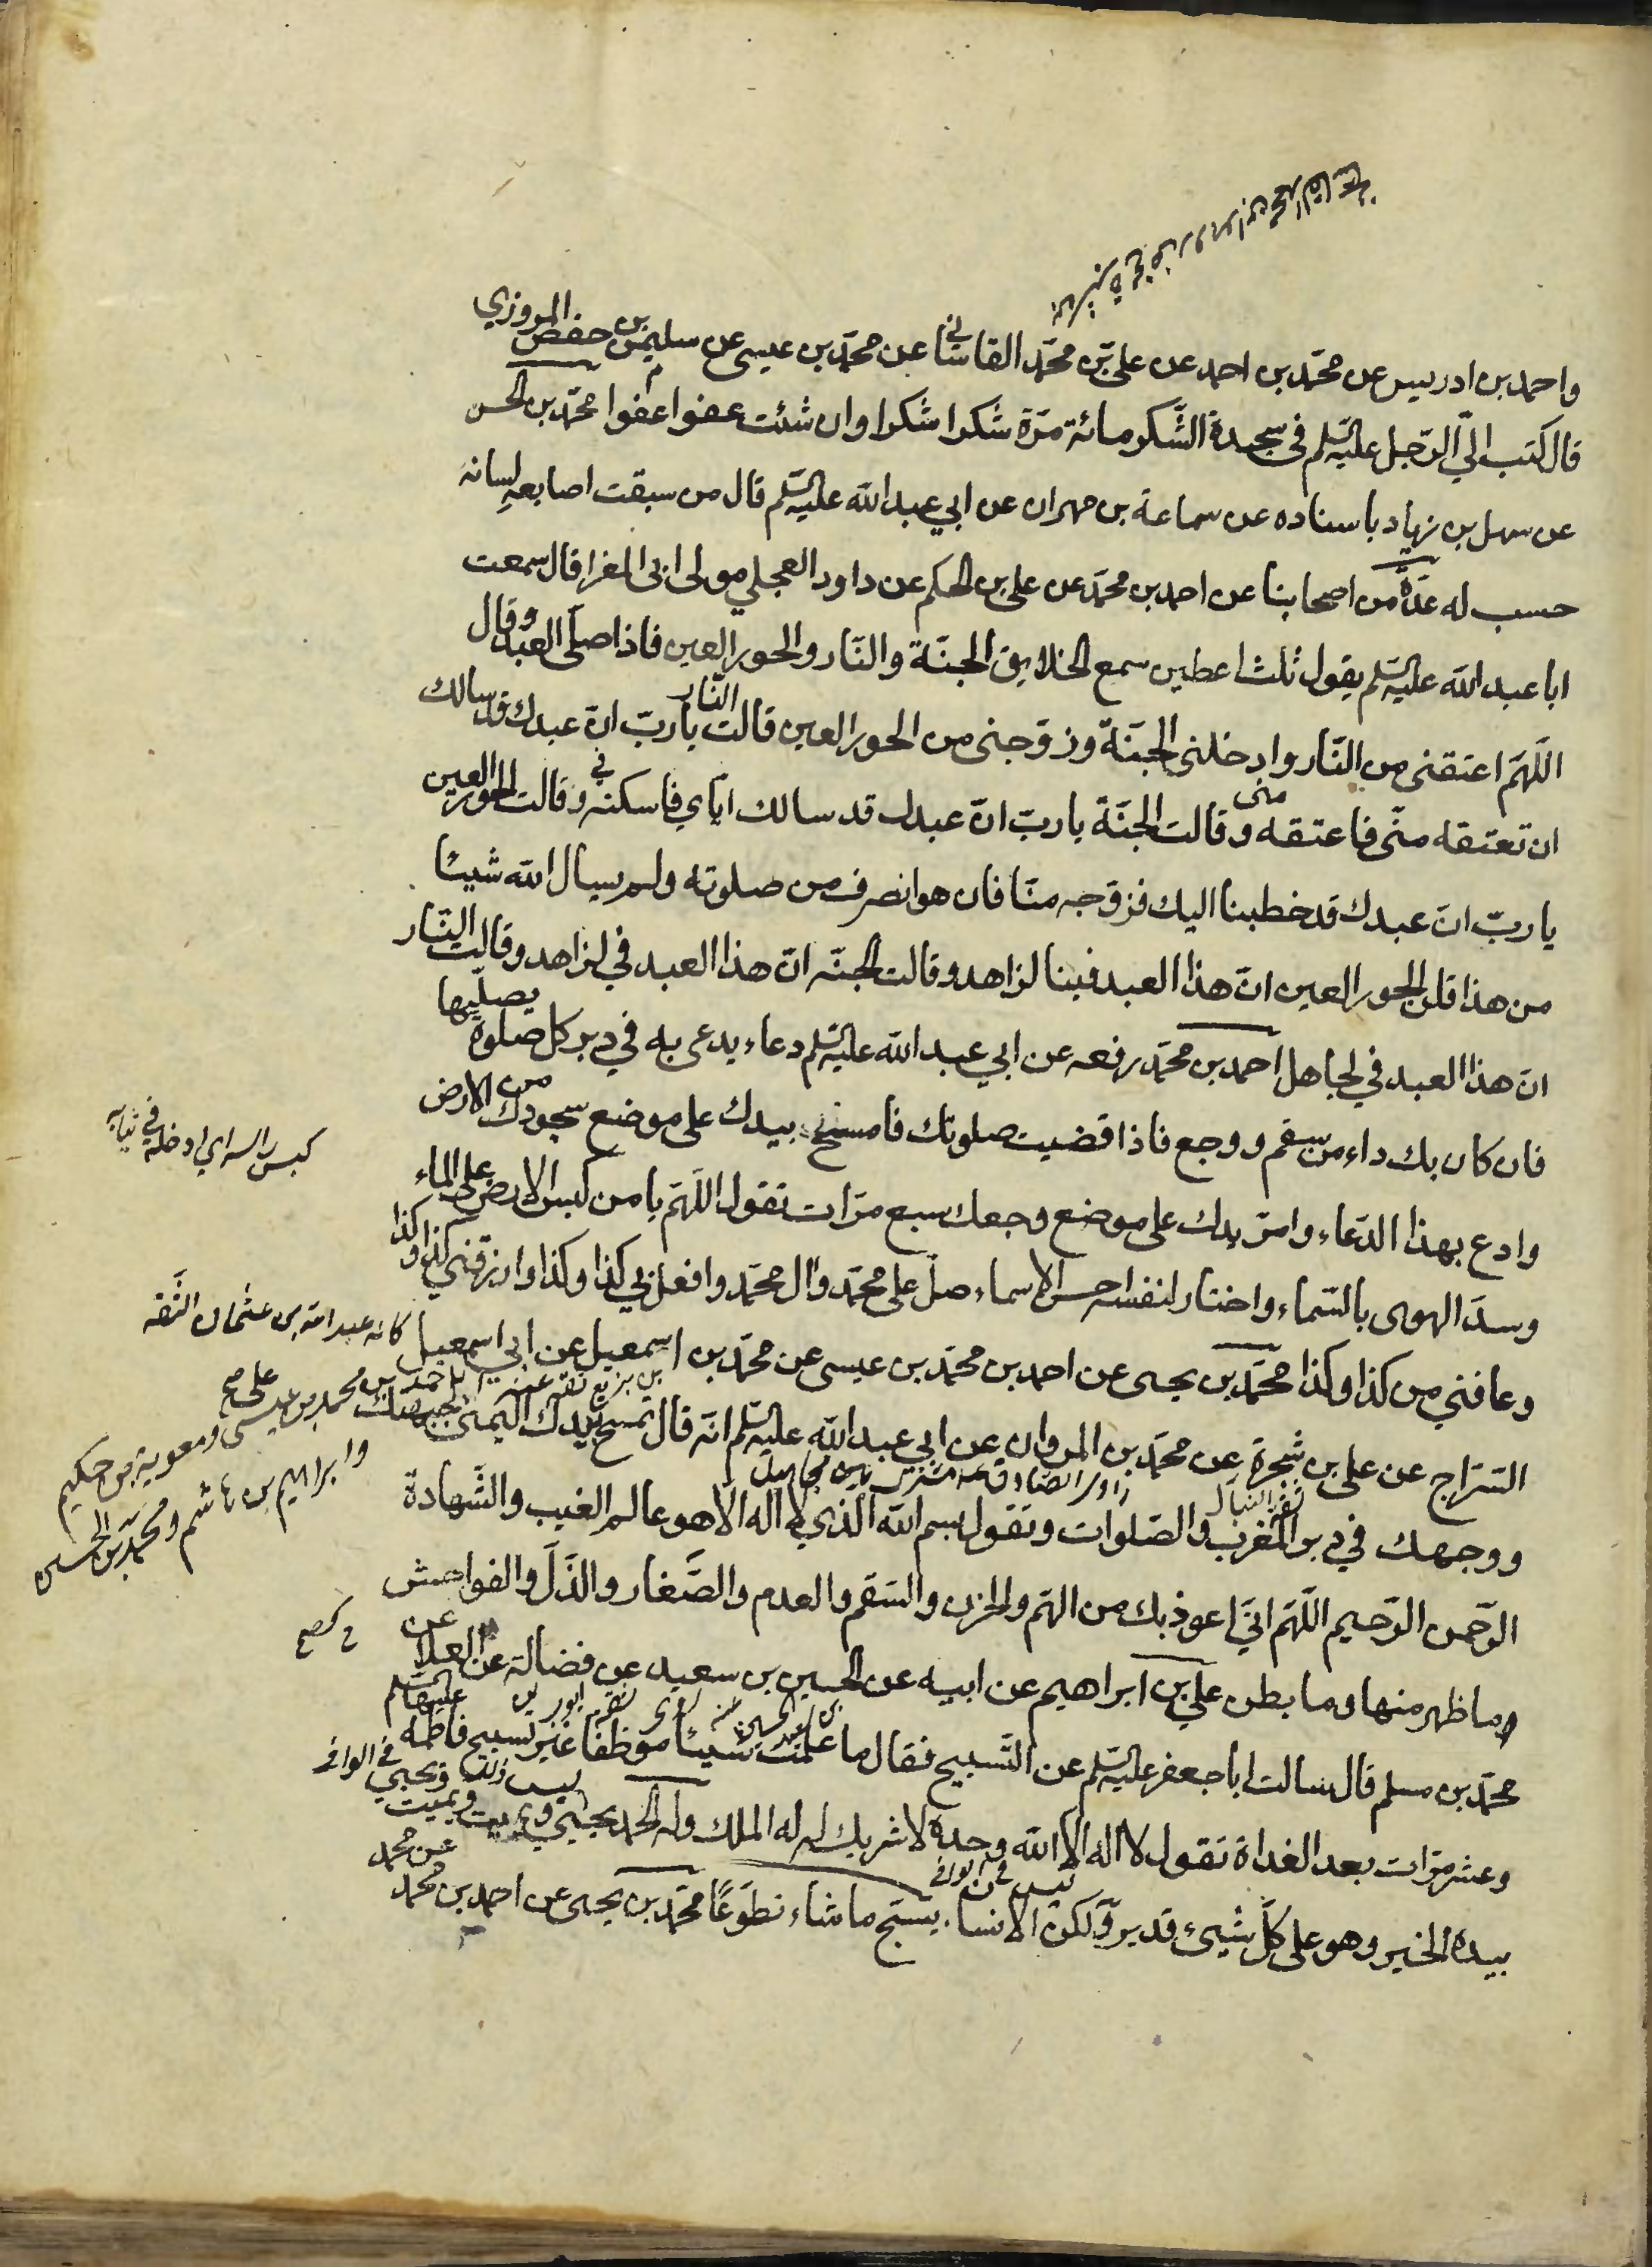 واحمد بن ادريس عن محمّد بن احمد عن علي بن محمّد القاساني عن محمّد بن عيسى عن سليمن بن حفص المروزي
قال كتب اليّ الرّجل عليه السّلم في سجدة الشّكر مائة مرّة شكرا شكرا وان شئت عفوا عفوا محمّد بن الحسن
عن سهل بن زياد باسناده عن سماعة بن مهران عن ابي عبد الله عليه السّلم قال من سبقت اصابعه لسانه
حسب له عدّة من اصحابنا عن احمد بن محمّد عن علي بن الحكم عن داود العجلي مولى ابي المغرا قال سمعت
ابا عبد الله عليه السّلم يقول ثلث اعطين سمع الخلايق الجنّة والنّار والحور العين فاذا صلّى العبد وقال
اللّهمّ اعتقني من النّار وادخلني الجنّة وزوّجني من الحور العين قالت النّار يا ربّ انّ عبدك قد سالك
ان تعتقه منّي فاعتقه منى وقالت الجنّة يا ربّ انّ عبدك قد سالك ايّاي فاسكنه فيّ وقالت الحور العين
يا ربّ انّ عبدك قد خطبنا اليك فزوّجه منّا فان هو انصرف من صلوته ولم يسال الله شيئا
من هذا قلن الحور العين انّ هذا العبد فينا لزاهد وقالت الجنّه انّ هذا العبد فيّ لزاهد وقالت النّار
انّ هذا العبد فيّ لجاهل احمد بن محمّد رفعه عن ابي عبد الله عليه السّلم دعاء يدعى به في دبر كل صلوة يصلّيها
فان كان بك داء من سقم ووجع فاذا قضيت صلوتك فامسح بيدك على موضع سجودك من الارض
كبس راسه اي ادخله في ثيابه
وادع بهذا الدّعاء وامرّ يدك على موضع وجعك سبع مرّات تقول اللّهمّ يا من كبس الارض على الماء
وسدّ الهوى بالسّماء واختار لنفسه احسن الاسماء صلّ على محمّد وال محمّد وافعل بي كذا وكذا وارزقني كذا وكذا
وعافني من كذا وكذا محمّد بن يحيى عن احمد بن محمّد بن عيسى عن محمّد بن اسمعيل عن ابي اسمعيل
كانه عبد الله بن عثمان الثّقه
بن بزيع ثقه عنه احمد بن محمد بن عيسى ومعوية بن حكيم
وابراهيم بن هاشم ومحمّد بن الحسين
السّرّاج عن علي بن شجرة عن محمّد بن المروان عن ابي عبد الله عليه السّلم انّه قال تمسح بيدك اليمنى على جبهتك
ووجهك في دبر المغرب والصّلوات وتقول بسم الله الّذي لا اله الا هو عالم الغيب والشّهادة
الرّحمن الرّحيم اللّهمّ انّي اعوذ بك من الهمّ والحزن والسّقم والعدم والصّغار والذّلّ والفواحش
وما ظهر منها وما بطن علي بن ابراهيم عن ابيه عن الحسين بن سعيد عن فضالة عن العلا عن
محمّد بن مسلم قال سالت ابا جعفر عليه السّلم عن التّسبيح فقال ما علمت شيئا موظفّا غير تسبيح فاطمه عليها السّلم
وعشر مرّات بعد الغداة تقول لا اله الا الله وحده لا شريك له له الملك وله الحمد يحيي ويميت ويميت ويحيي
بيده الخير وهو على كلّ شيئ قدير ولكن الانسان يسبّح ما شاء تطوّعًا محمّد بن يحيى عن احمد بن محمد عن محمد